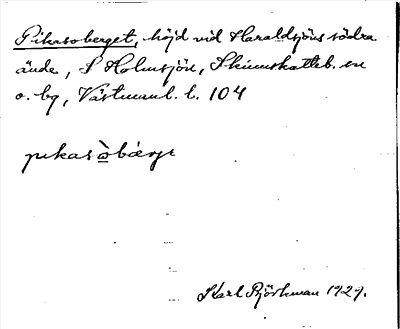 Pikasoberget, höjd vid Haraldsjöns södra
ände, S Holmsjön, Skinnskatteb. sn
o. bg, Västmanl. l. 104
pikasòbærje
Karl Björkman 1929.